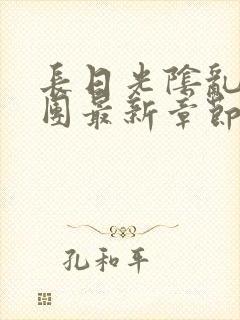 長日光陰亂
團最新章節
孔和平